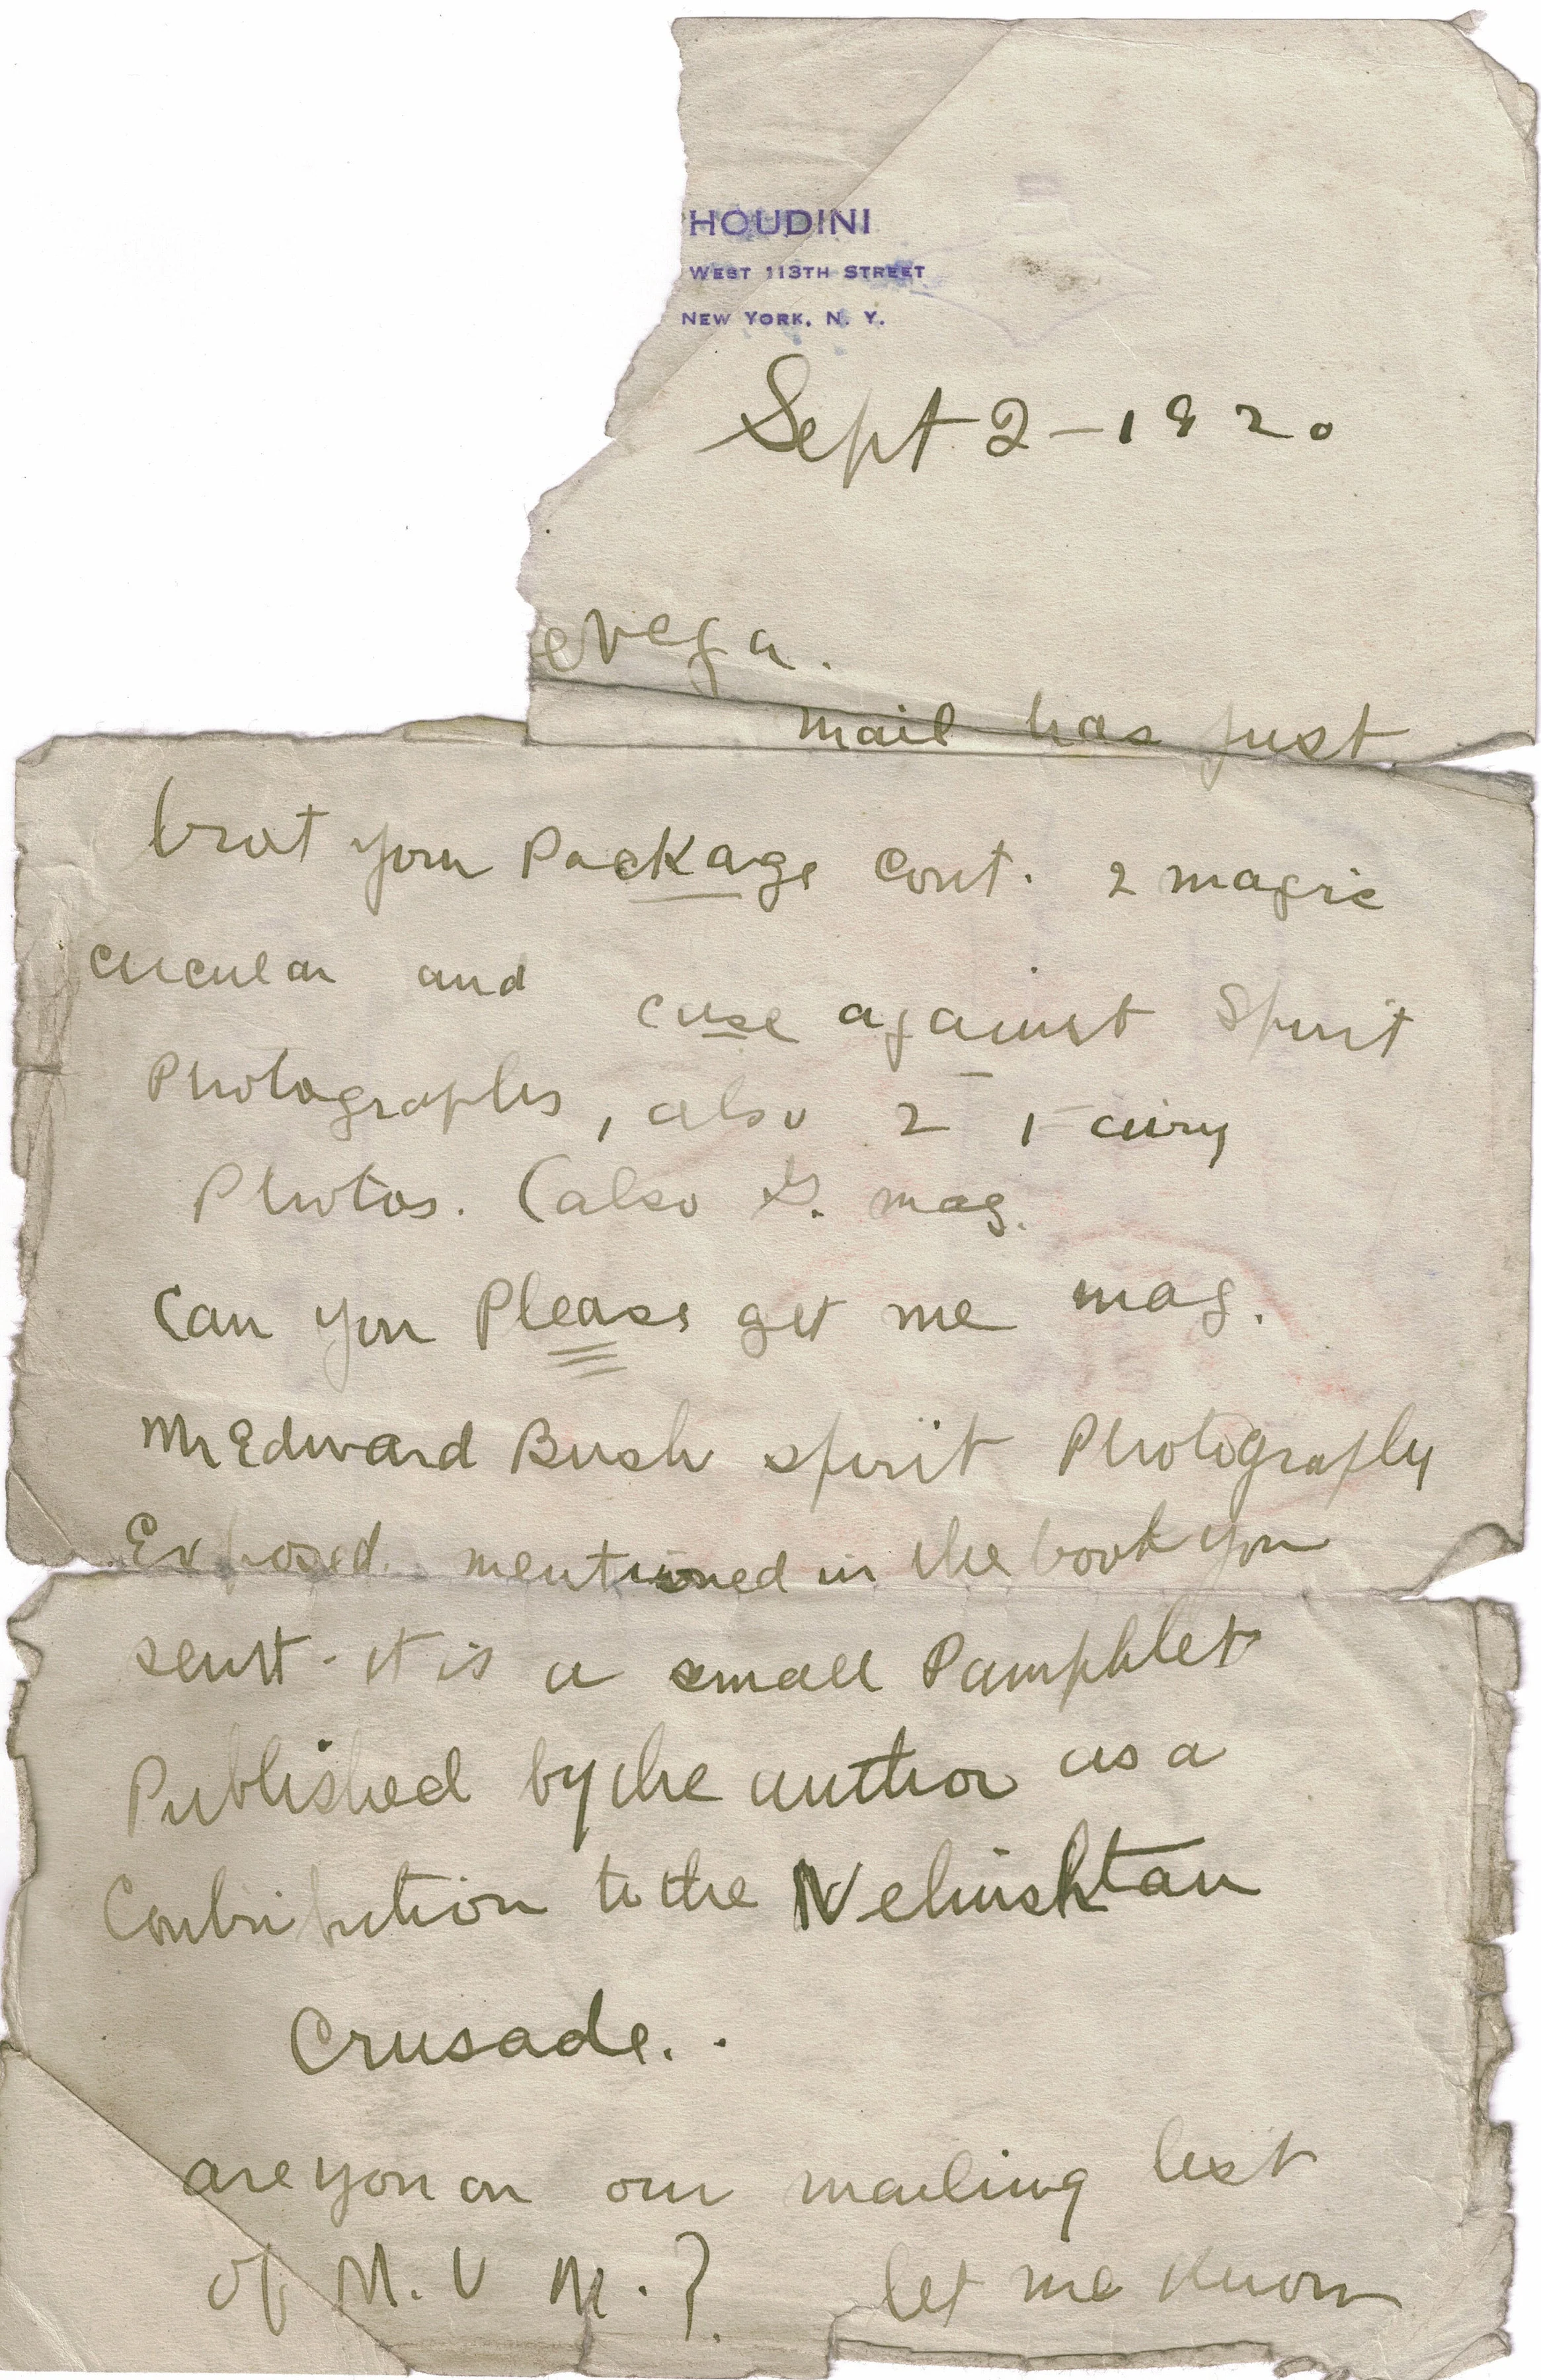 HOUDINI
WEST 113TH STREET
NEW YORK, N. Y.
Sept 2 - 1920
eVega.
mail has just
brot your Package Cont. 2 magic
circular and case against Spirit
Photographs, also 2 Fairy
Photos. (also G. mag.
Can you Please get me mag.
Mr Edward Bush spirit Photography
Exposed mentioned in the book you
sent. it is a small Pamphlet
Published by the author as a
Contribution to the Nehushtan
Crusade..
are you on our mailing list
of M. U M. ? let me know